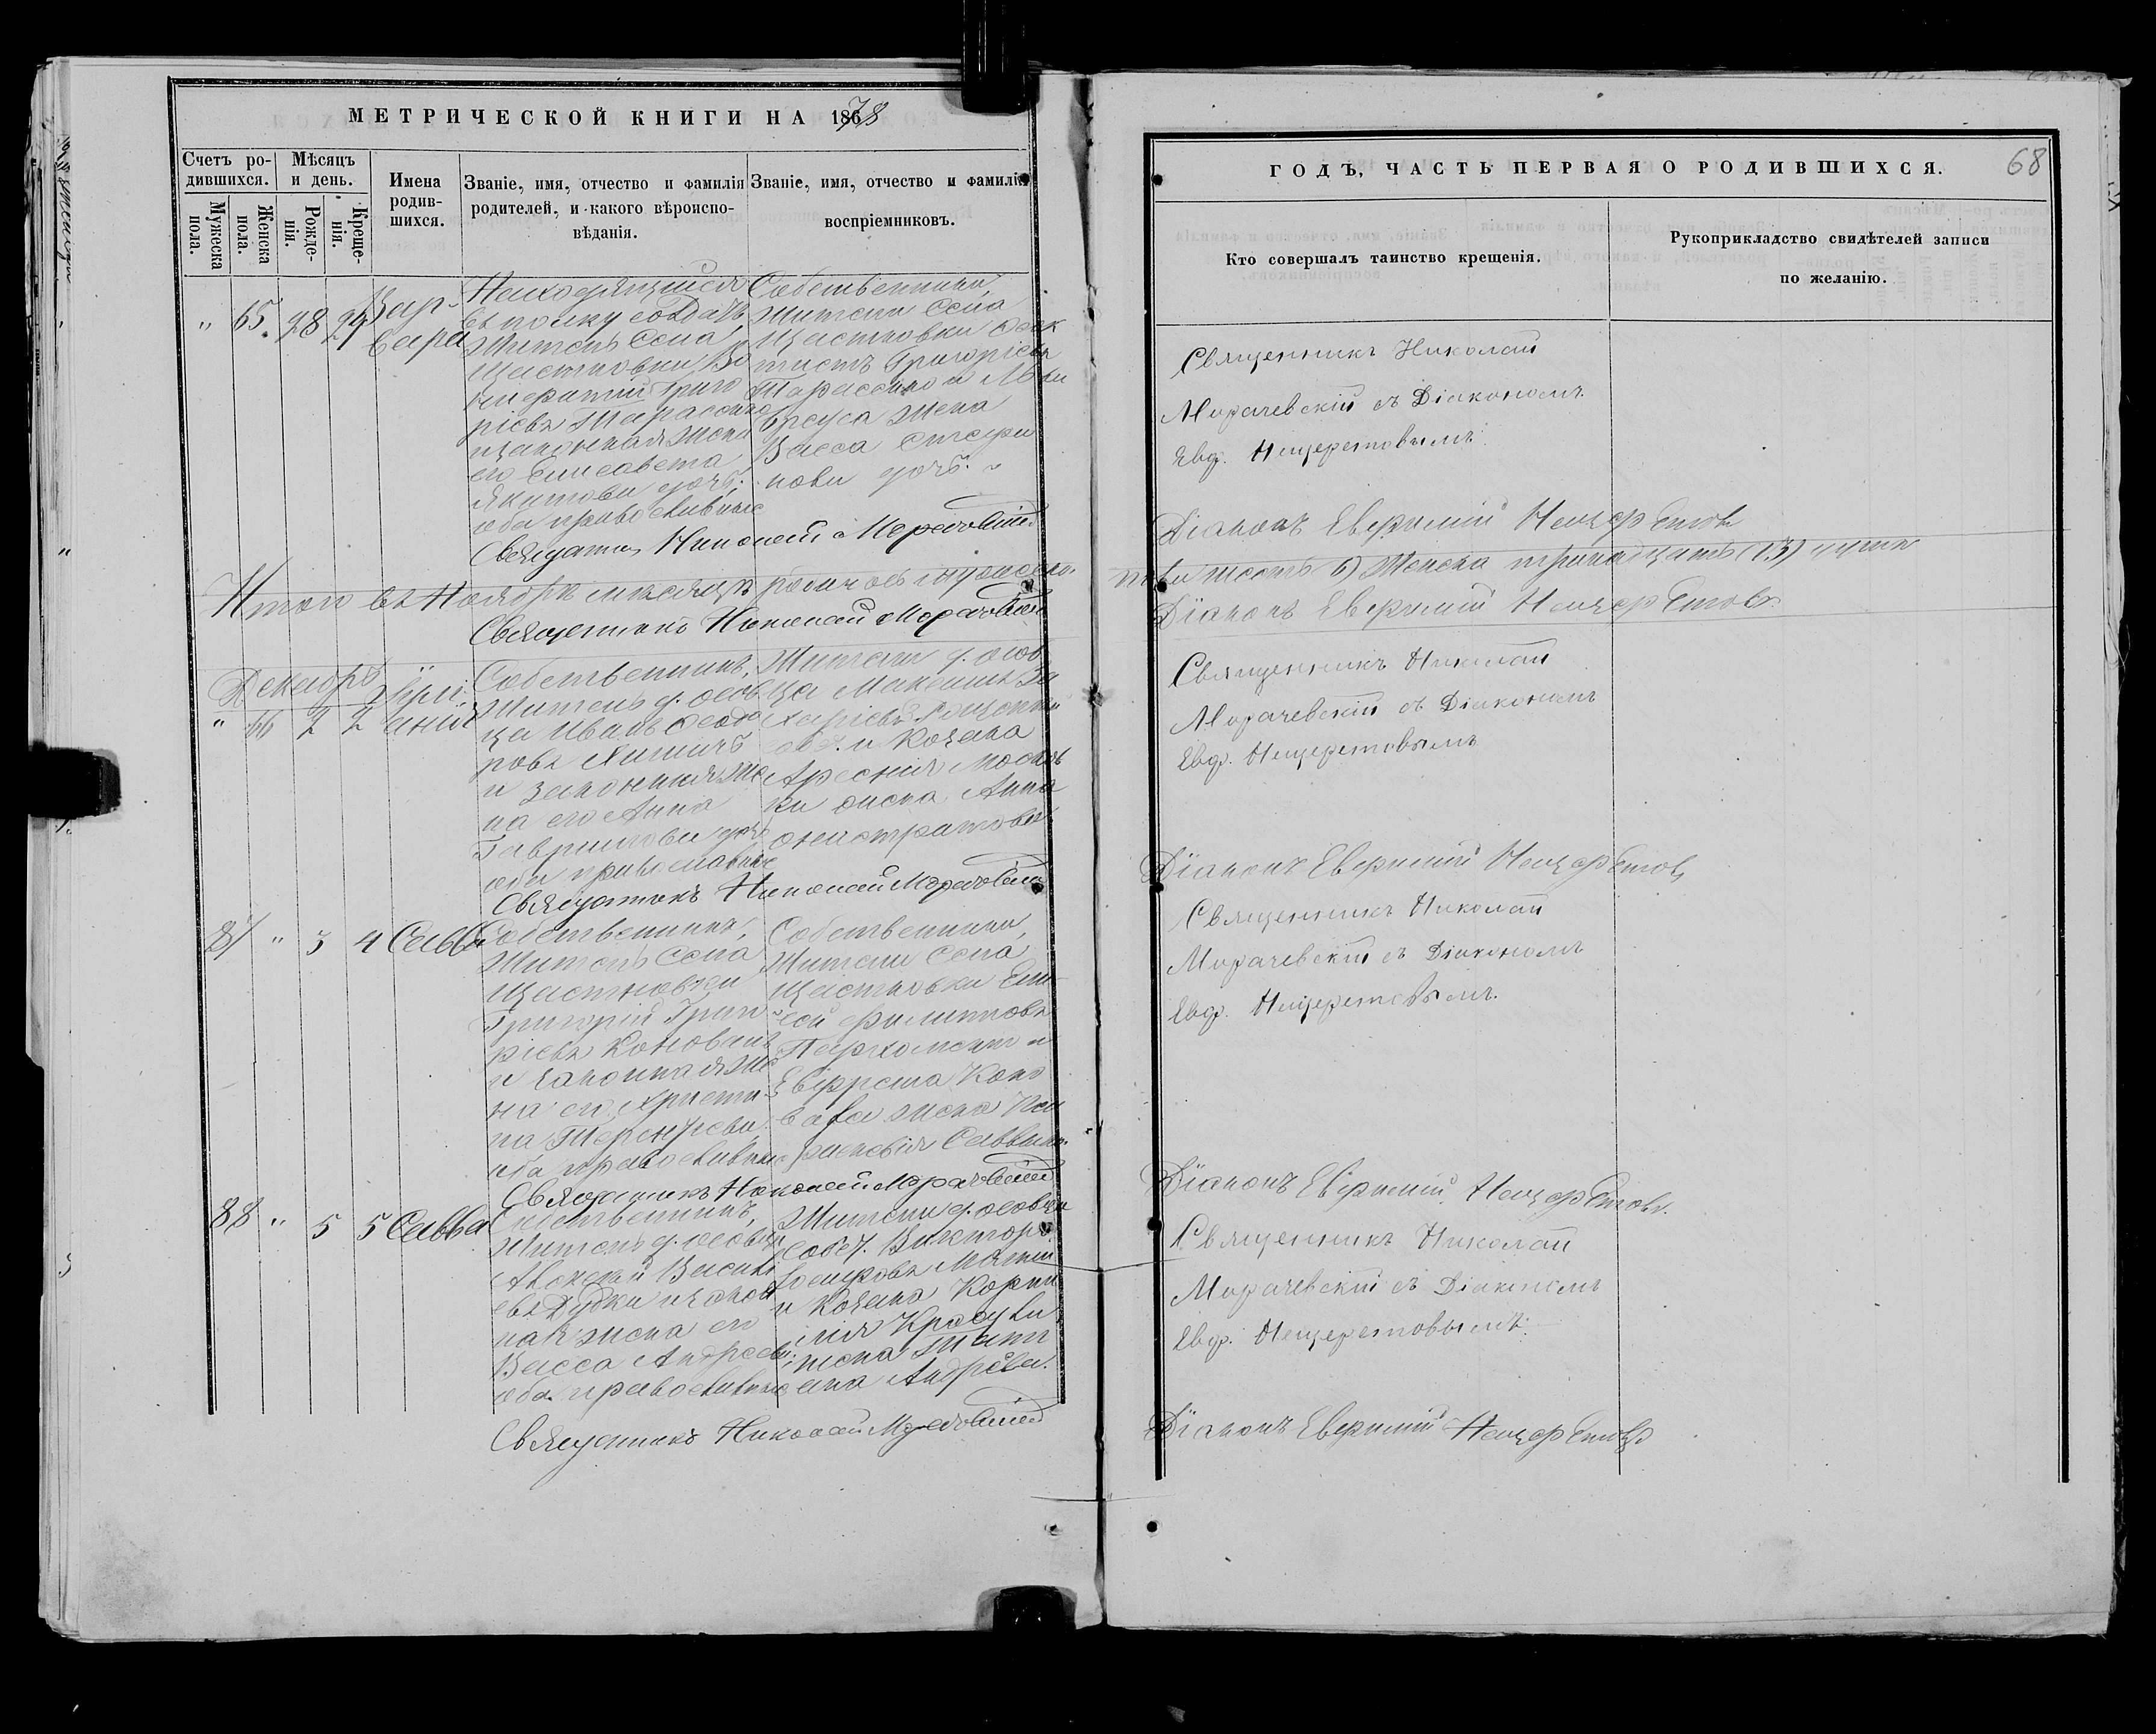 МЕТРИЧЕСКОЙ КНИГИ НА 1878
Счетъ ро-
дившихся.
Мѣсяцъ
и день.
Мужеска
пола.
Женска
пола.
Рожде-
нія.
Креще-
нія.
Имена
родив-
шихся.
Званіе, имя, отчество и фамилія
родителей, и какого вѣроиспо-
вѣданія.
Званіе, имя, отчество и фамилія
воспріемниковъ.
" 65. 28 29 Вар-
вара
Находящійся
въ полку солдатъ,
Житель села
Щастновки
Григо
рієвъ Тарасенко
и законная жена
его Елисавета
дочь,
оба православные
Собственники,
Жители села
Щастновки
Григорієвъ
Тарасенко и
жена
Васса Стефа
нова дочь.
Священникъ Николай Морачевскій
Итого въ Ноябрѣ мѣсяцѣ родилось мужеска
Священникъ Николай Морачевскій
Декабрь
" 66 2 2 Іулі
анія
Собственникъ,
Житель д. осов
ца Иванъ Феодо
ровъ
и законная же
на его Анна
Гаврилова дочь
оба православные
Жители д. осов
ца Максимъ За
харіевъ
и Козака
жена Анна
Священникъ Николай Морачевскій
87 " 3 4 Савва
Собственникъ,
Житель села
Щастновки
Григорій Григо
рієвъ Коновалъ
и законная же
на его Христи
на Терентієва
оба православные
Собственники,
Жители села
Щастновки Ели
сей Филиповъ
Пархоменко и
Евфрема Коно
вала жена
Саввина
Священникъ Николай Морачевскій
88 " 5 5 Савва
Собственникъ,
Житель д. осовца
Алексѣй Василі
евъ Дудка и закон
ная жена его
Васса Андреева
оба православные
Жители д. осовца
собст. Викторъ
и Козака Корни
лія Красули
жена Тати
ана Андреева.
Священникъ Николай Морачевскій
ГОДЪ, ЧАСТЬ ПЕРВАЯ О РОДИВШИХСЯ. 68
Кто совершалъ таинство крещенія.
Рукоприкладство свидѣтелей записи
по желанію.
Священникъ Николай
Морачевскій съ Діакономъ
Евф. Нещеретовымъ.
Діаконъ Евфимій Нещеретовъ
пола шесть 6) Женска тринадцать (13) душъ
Діаконъ Евфимій Нещеретовъ.
Священникъ Николай
Морачевскій съ Діакономъ
Евф. Нещеретовымъ
Діаконъ Евфимій Нещеретовъ
Священникъ Николай
Морачевскій съ Діакономъ
Евф. Нещеретовымъ.
Діаконъ Евфимій Нещеретовъ.
Священникъ Николай
Морачевскій съ Діакономъ
Евф. Нещеретовымъ.
Діаконъ Евфимій Нещеретовъ